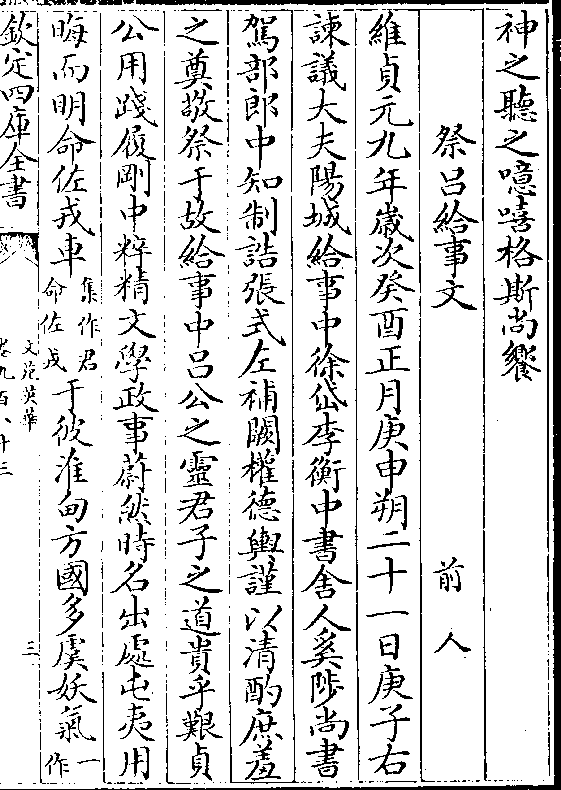 神之聽之噫嘻格斯尚饗
祭呂給事文 前人
維貞元九年歲次癸酉正月庚申朔二十一日庚子右
諫議大夫陽城給事中徐岱李衡中書舍人奚陟尚書
駕部郎中知制誥張式左補闕權德輿謹以清酌庶羞
之奠敬祭于故給事中呂公之靈君子之道貴乎艱貞
公用踐履剛中粹精文學政事蔚然時名出處屯夷用
晦而明命佐戎車集作君命佐戎于彼淮甸方國多虞妖氣一作
欽定四庫全書
文苑英華
卷九百八十三
三